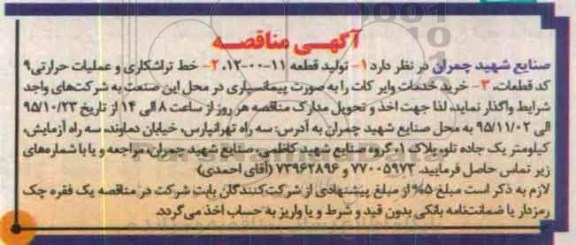 آگهی مناقصه
صنایع شهید چمران در نظر دارد ۱- تولید قطعه ۱۱-۰۰-۱۲، ۲- خط تراشکاری و عملیات حرارتی۹
کد قطعات، ۳- خرید خدمات وایر کات را به صورت پیمانسپاری در محل این صنعت به شرکت‌های واجد
شرایط واگذار نماید، لذا جهت اخذ و تحویل مدارک مناقصه هر روز از ساعت ۸ الی ۱۴ از تاریخ ۹۵/۱۰/۲۳
الی ۹۵/۱۱/۰۲ به محل صنایع شهید چمران به آدرس: سه راه تهرانپارس، خیابان دماوند، سه راه آزمایش،
کیلومتر یک جاده تلو، پلاک ۱، گروه صنایع شهید کاظمی، صنایع شهید چمران، مراجعه و یا با شماره‌های
زیر تماس حاصل فرمایید. ۷۷۰۰۵۹۷۳ و ۷۳۹۶۲۸۹۶ (آقای احمدی)
لازم به ذکر است مبلغ ۵% از مبلغ پیشنهادی از شرکت‌کنندگان بابت شرکت در مناقصه یک فقره چک
رمزدار یا ضمانتنامه بانکی بدون قید و شرط و یا واریز به حساب اخذ می‌گردد.